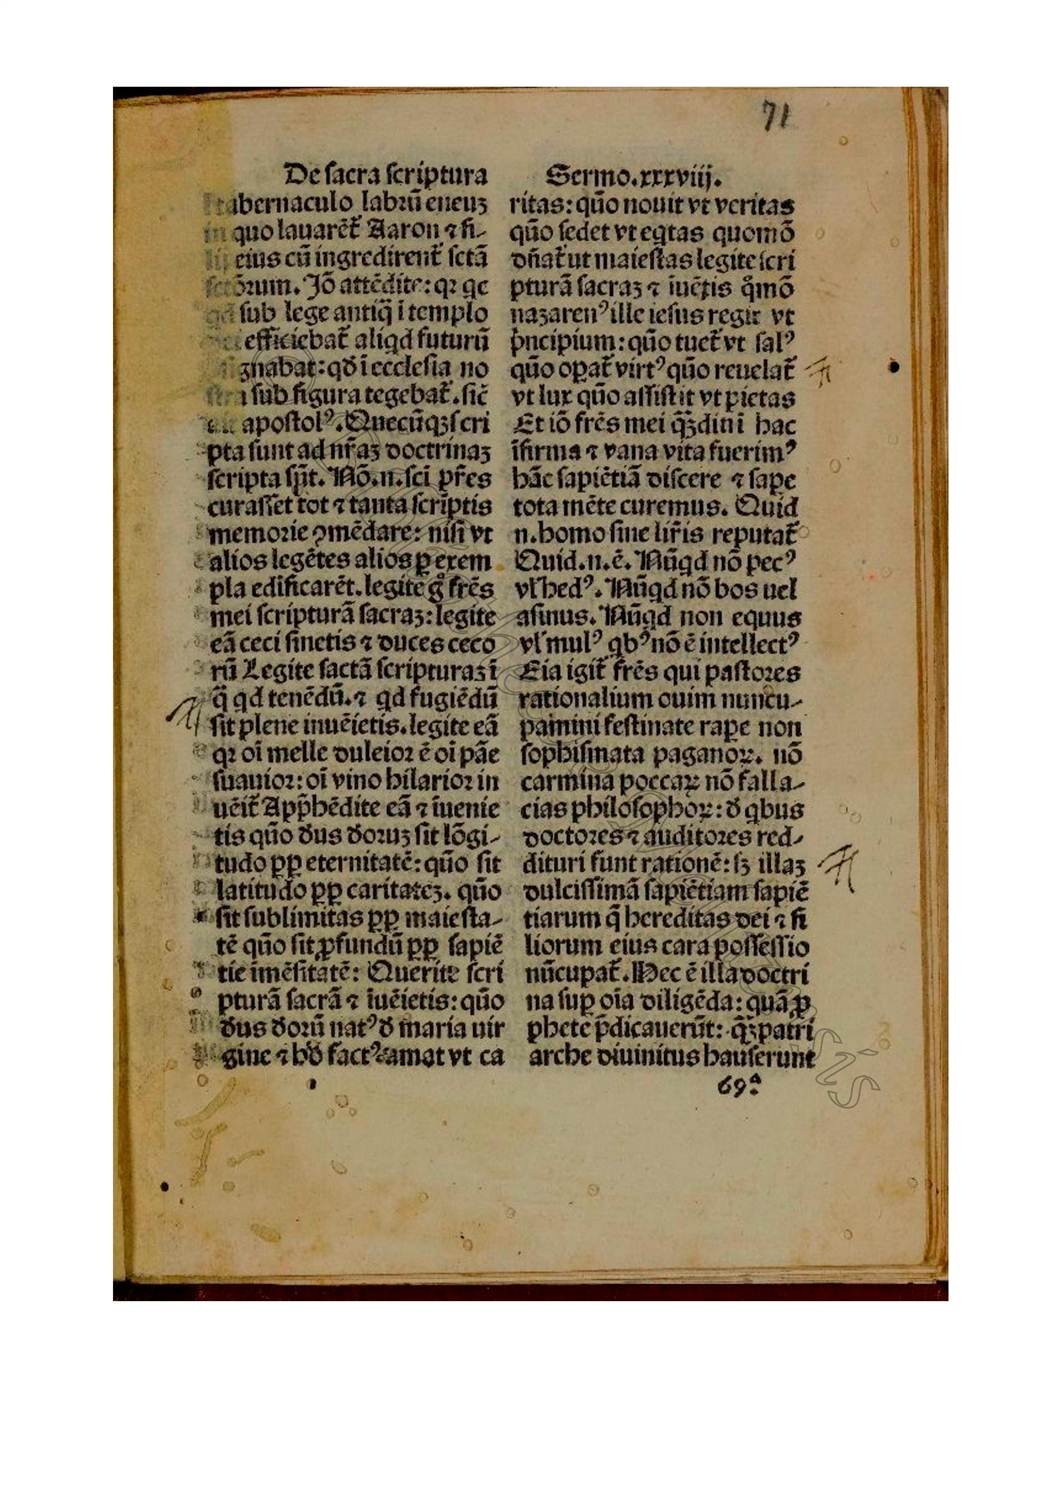 71
De sacra scriptura
Sermo.xxxviij.
tabernaculo labrū eneuꝫ
in quo lauarēt̄ Aaron ⁊ fi-
lij eius cū ingredirent̄ sctā
sctōrum. Jō attēdite: qꝛ qe
qd sub lege antiq̄ ī templo
efficiebat̄ aliqd futurū
gnabat: qđ ī ecclesia no
stra sub figura tegebat̄. sic̄
apostolꝰ. Quecūqꝫ scri
pta sunt ad nr̄aꝫ doctrinaꝫ
scripta sn̄t. Nō.n.sci pr̄es
curasset tot ⁊ tanta scriptis
memorie ꝯmēdare: nisi vt
alios legētes alios ꝑ exem
pla edificarēt. legite g̊ frēs
mei scripturā sacraꝫ: legite
eā ceci sinetis ⁊ duces ceco
rū Legite sactā scripturaꝫ ī
q̄ qd tenēdū. ⁊ qd fugiēdū
sit plene inuēietis. legite eā
qꝛ oī melle dulcior ē oī pāe
suauior: oī vino hilarior in
uēit̄ App̄hēdite eā ⁊ īuenie
tis quō đus đoruꝫ sit lōgi-
tudo ꝓꝑ eternitatē: quō sit
latitudo ꝓꝑ caritateꝫ. quō
sit sublimitas ꝓꝑ maiesta-
tē quō sit ꝓfundū ꝓꝑ sapiē
tie īmēsitatē: Querite scri
pturā sacrā ⁊ īuēietis: quō
đus đorū natꝰ đ maria uir
gine ⁊ hđ factꝰ amat vt ca
ritas: quō nouit vt veritas
quō sedet vt eqtas quomō
đnat̄ ut maiestas legite scri
pturā sacraꝫ ⁊ iuētis q̊mō
nazarenꝰ ille iesus regit vt
p̄ncipium: quō tuet̄ vt salꝰ
quō opat̄ virtꝰ quō reuelat̄
vt lux quō assistit vt pietas
Et iō frēs mei q̄ꝫdiu ī hac
īfirma ⁊ vana vita fuerimꝰ
hāc sapiētiā discere ⁊ sape
tota mēte curemus. Quid
n. homo sine lr̄is reputat̄
Quid.n.ē. Nūqd nō pecꝰ
vl̄ hedꝰ. Nūqd nō bos uel
asinus. Nūqd non equus
vl̄ mulꝰ qbꝰ nō ē intellectꝰ
Eia igit̄ frēs qui pastores
rationalium ouim nuncu-
pamini festinate rape non
sophismata paganoꝝ. nō
carmina poccaꝝ nō falla-
cias philosophoꝝ: đ qbus
doctores ⁊ auditores red-
dituri sunt rationē: sꝫ illaꝫ
dulcissimā sapiētiam sapiē
tiarum q̄ hereditas dei ⁊ fi
liorum eius cara possessio
nūcupat̄. Hec ē illa doctri
na sup oīa diligēda: quā ꝓ
phete p̄dicauerūt: q̄ꝫ patri
arche diuinitus hauserunt
69.